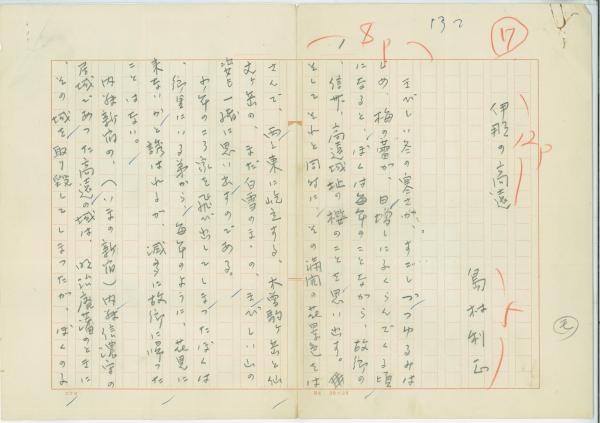 ⑰
132
8p
12p
伊那の高遠
5
島村利正
元
きびしい冬の寒さが、すこしづつゆるみは
じめ、梅の蕾が、日増しにふくらんでくる頃
になると、ぼくは毎年のことながら、故郷の
、信州、高遠城址の桜のことを思い出す。
そしてそれと同時に、その満開の花景色をは
さんで、西と東に屹立する、木曽駒ヶ岳と仙
丈ヶ岳の、まだ白雪のまゝの、きびしい山の
姿も一緒に思い出すのである。
少年のころ家を飛び出してしまったぼくは
、郷里にいる弟から、毎年のように、花見に
来ないかと誘はれるが、滅多に故郷に帰った
ことはない。
内藤新宿の、(いまの新宿)内藤信濃守の
居城であった高遠の城は、明治廃藩のときに
、その城を取り毀してしまったが、ぼくのよ